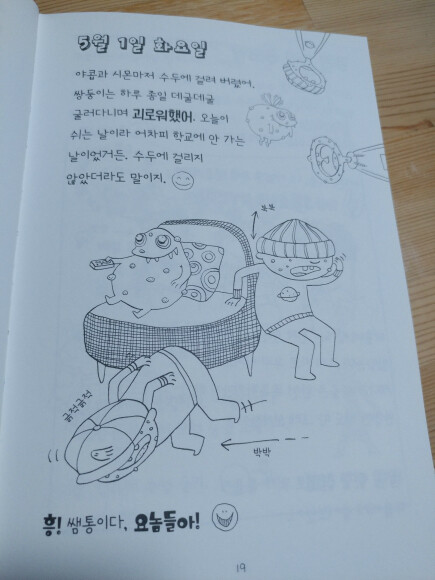 5월 1일 화요일
야콥과 시몬마저 수두에 걸려 버렸어.
쌍둥이는 하루 종일 데굴데굴
굴러다니며 괴로워했어. 오늘이
쉬는 날이라 어차피 학교에 안 가는
날이었거든. 수두에 걸리지
않았더라도 말이지.
벅벅
긁적긁적
박박
흥! 쌤통이다, 요놈들아!
19